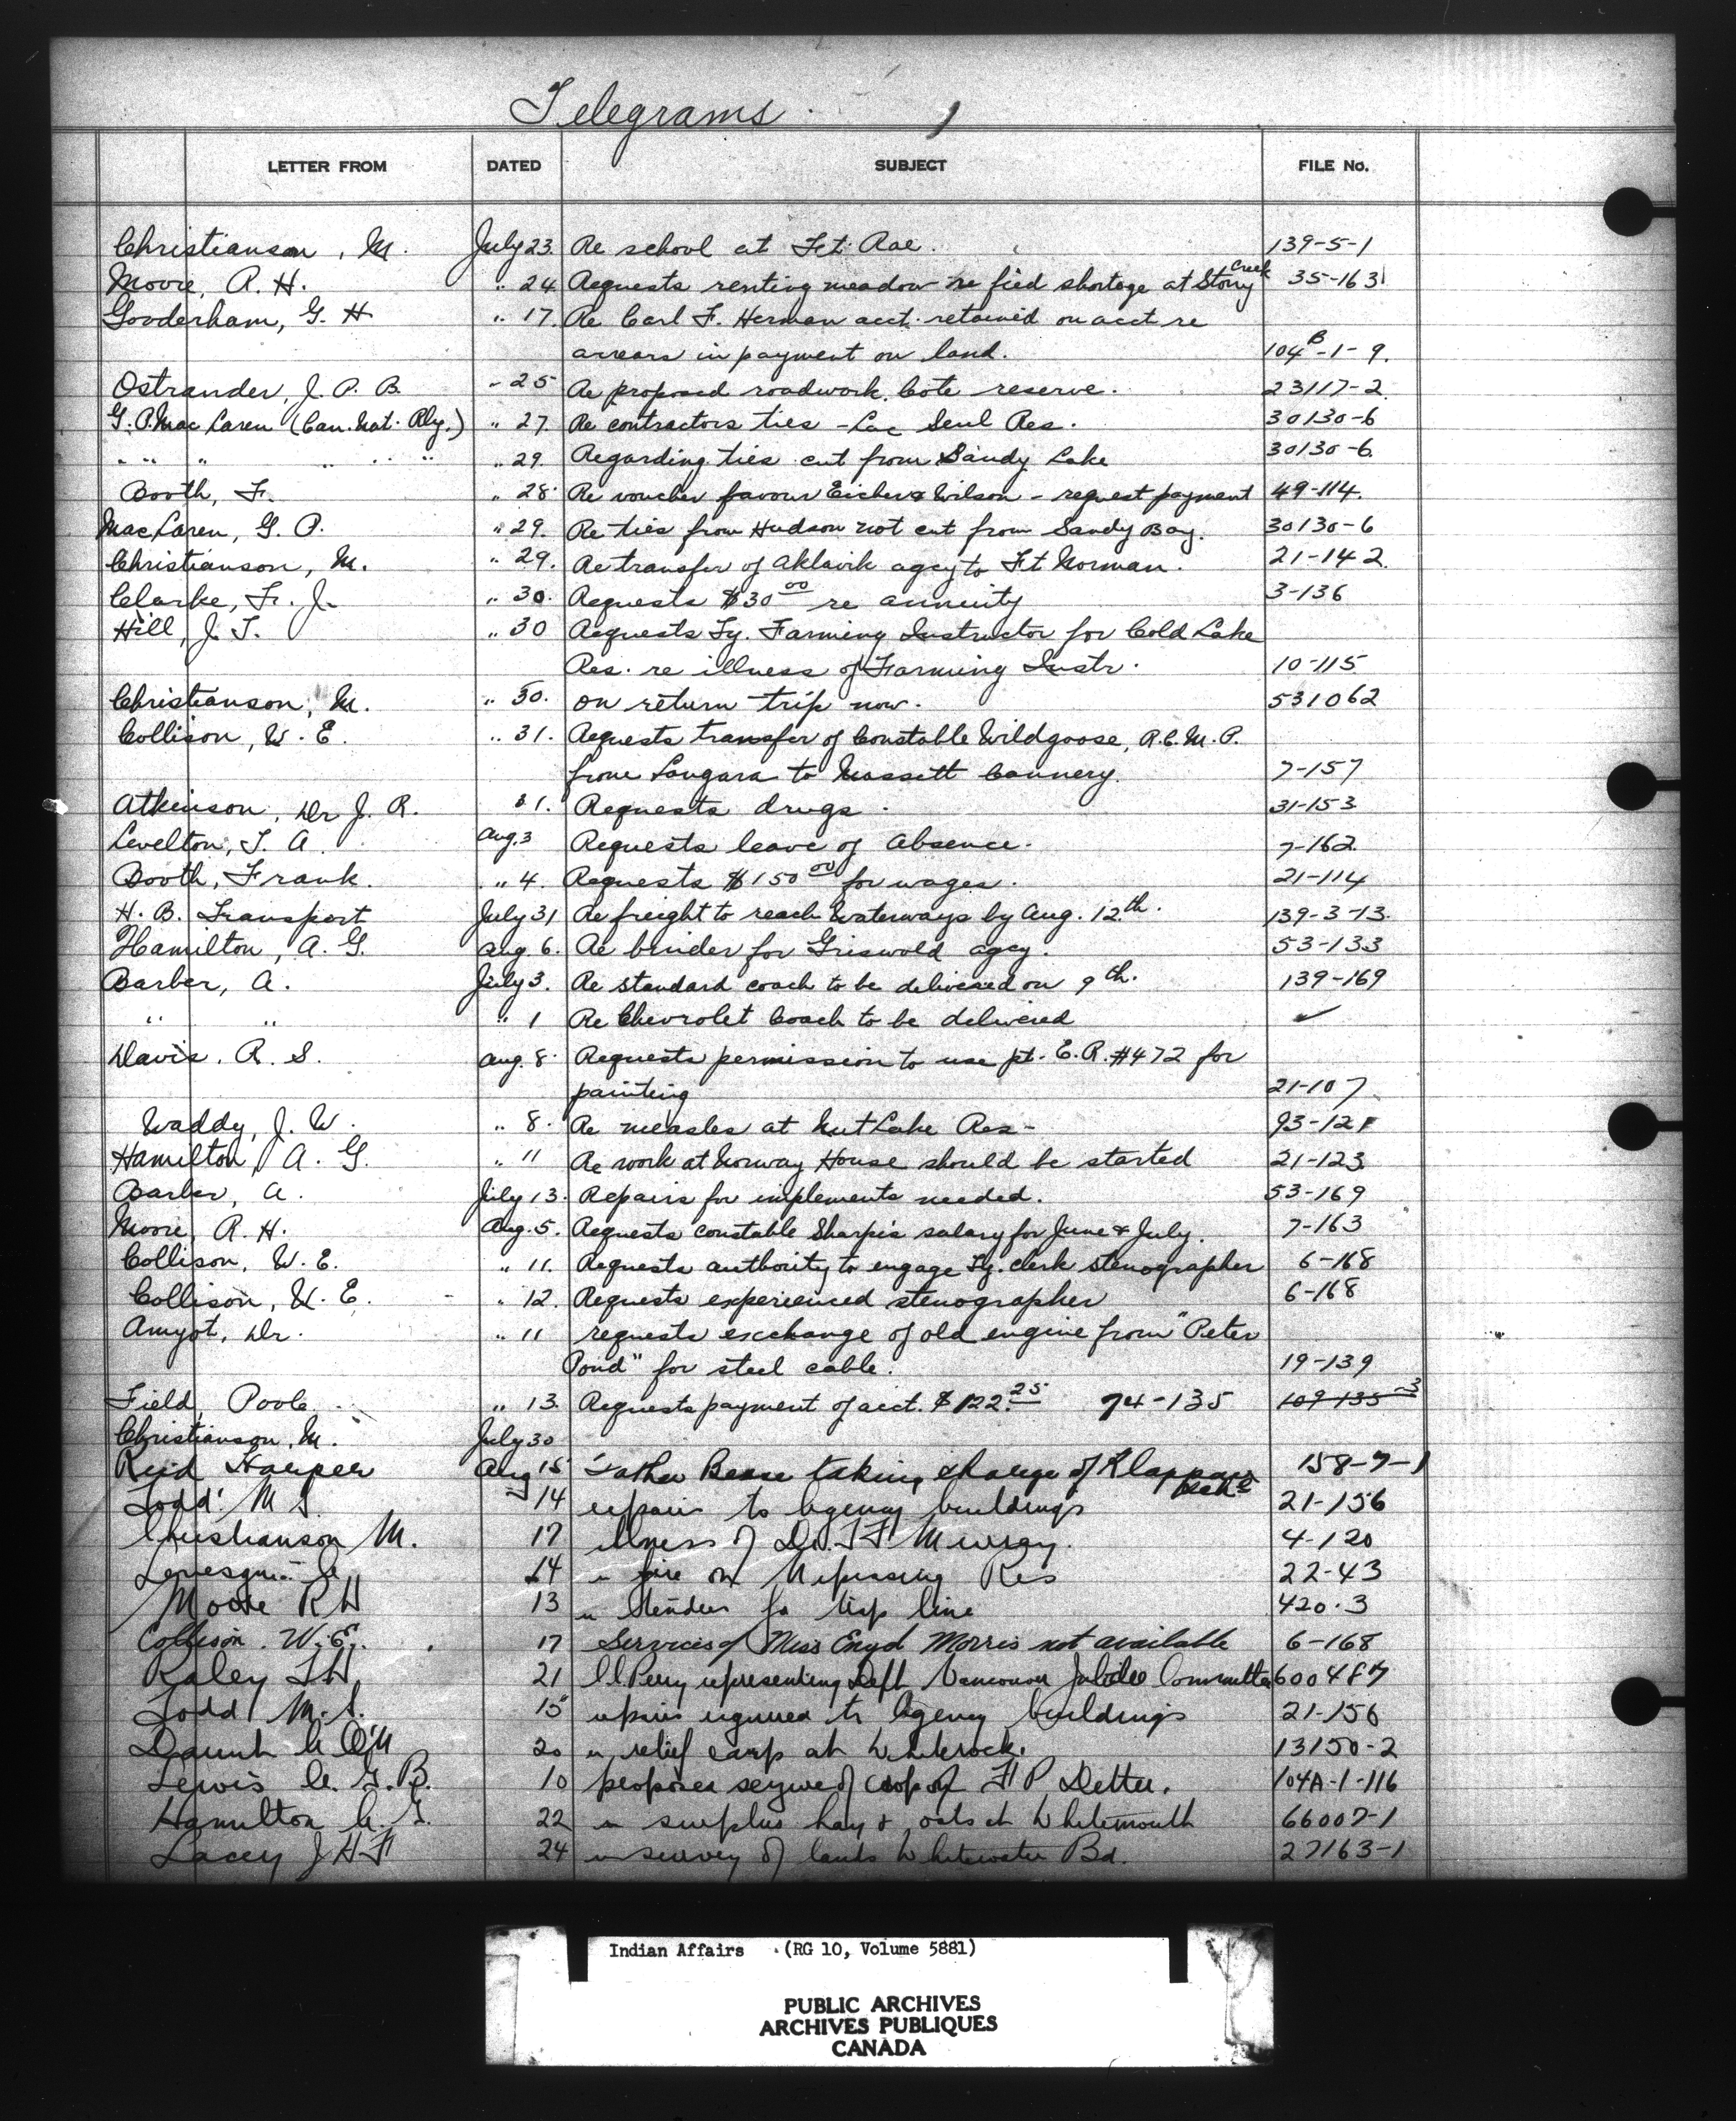 Telegrams 1
LETTER FROM DATED SUBJECT FILE No.
Christianson, M. July 23. Re school at Ft. Rae. 139-5-1
Creek
Moore, R. H. " 24 Requests renting meadow re feed shortage at Stony 35-163
Gooderham, G. H " 17. Re Carl F. Herman acct. retained on acct re
arrears in payment on land. 104B-1-9.
Ostrander, J. P. B. " 25 Re proposed roadwork. Cote reserve. 23117-2
G. P. MacLaren (Can. Nat. Rly.) " 27. Re contractors ties - Lac Seul Res. 30130-6
" " " " " " " 29. Regarding ties cut from Sandy Lake 30130-6.
Booth, F. " 28 Re voucher favour Eicher & Wilson - request payment 49-114.
MacLaren, G. P. " 29. Re ties from Hudson not cut from Sandy Bay. 30130-6
Christianson, M. " 29. Re transfer of Aklavik agcy to Ft Norman. 21-142
Clarke, Fr. J. " 30. Requests $30 00 re annuity 3-136
Hill, J. T. " 30 Requests Ty. Farming Instructor for Cold Lake
Res. re illness of Farming Instr. 10-115
Christianson, M. " 30. on return trip now. 531062
Collison, W. E. " 31. Requests transfer of Constable Wildgoose, R.C.M.P.
from Langara to Massett Cannery. 7-157
Atkinson, Dr J. R. 31. Requests drugs. 31-153
Levelton, T. A. Aug. 3 Requests leave of absence. 7-162
Booth, Frank. " 4. Requests $150 00 for wages. 21-114
H. B. Transport July 31 Re freight to reach Waterways by Aug. 12th. 139-3-13.
Hamilton, A. G. Aug. 6. Re binder for Griswold agcy. 53-133
Barber, A. July 3. Re standard coach to be delivered on 9th. 139-169
" " " 1 Re Chevrolet Coach to be delivered ✓
Davis. R. S. Aug. 8. Requests permission to use pt. E.R. #472 for
painting 21-107
Waddy, J. W. " 8. Re measles at Nut Lake Res- 93-121
Hamilton, A. G. " 11 Re work at Norway House should be started 21-123
Barber, A. July 13. Repairs for implements needed. 53-169
Moore, R. H. Aug. 5. Requests constable Sharpe's salary for June & July. 7-163
Collison, W. E. " 11. Requests authority to engage Ty. clerk stenographer 6-168
Collison, W. E. " 12. Requests experienced stenographer 6-168
Amyot, Dr. " 11 requests exchange of old engine from "Peter
Pond" for steel cable. 19-139
Field, Poole " 13. Requests payment of acct. $122.25 74-135 109-135-3
Christianson, M. July 30
Reid Harper Aug 15 Father taking charge of 158-7-1
Todd M S. 14 repairs to Agency buildings 21-156
Christianson M. 17 illness of Dr. T F Murray. 4-120
14 re fire on Nipissing Res 22-43
Moore R H 13 re tenders for trap line 420-3
Collison. W. E. 17 Services of Miss Enyd Morris not available 6-168
Raley 21 Perry representing Dept Vancouver Jubilee Committee 600487
Todd M. S. 15 repairs required to Agency buildings 21-156
Daunt A O'N 20 re relief camp at Whiterock. 13150-2
Lewis A. G. B. 10 proposes seizure of crop of F P Detter. 104A-1-116
Hamilton A. G. 22 re surplus hay & oats at Whitemouth 66007-1
Lacey J H F 24 re survey of lands Whitewater Bd. 27163-1
Indian Affairs (RG 10, Volume 5881)
PUBLIC ARCHIVES
ARCHIVES PUBLIQUES
CANADA